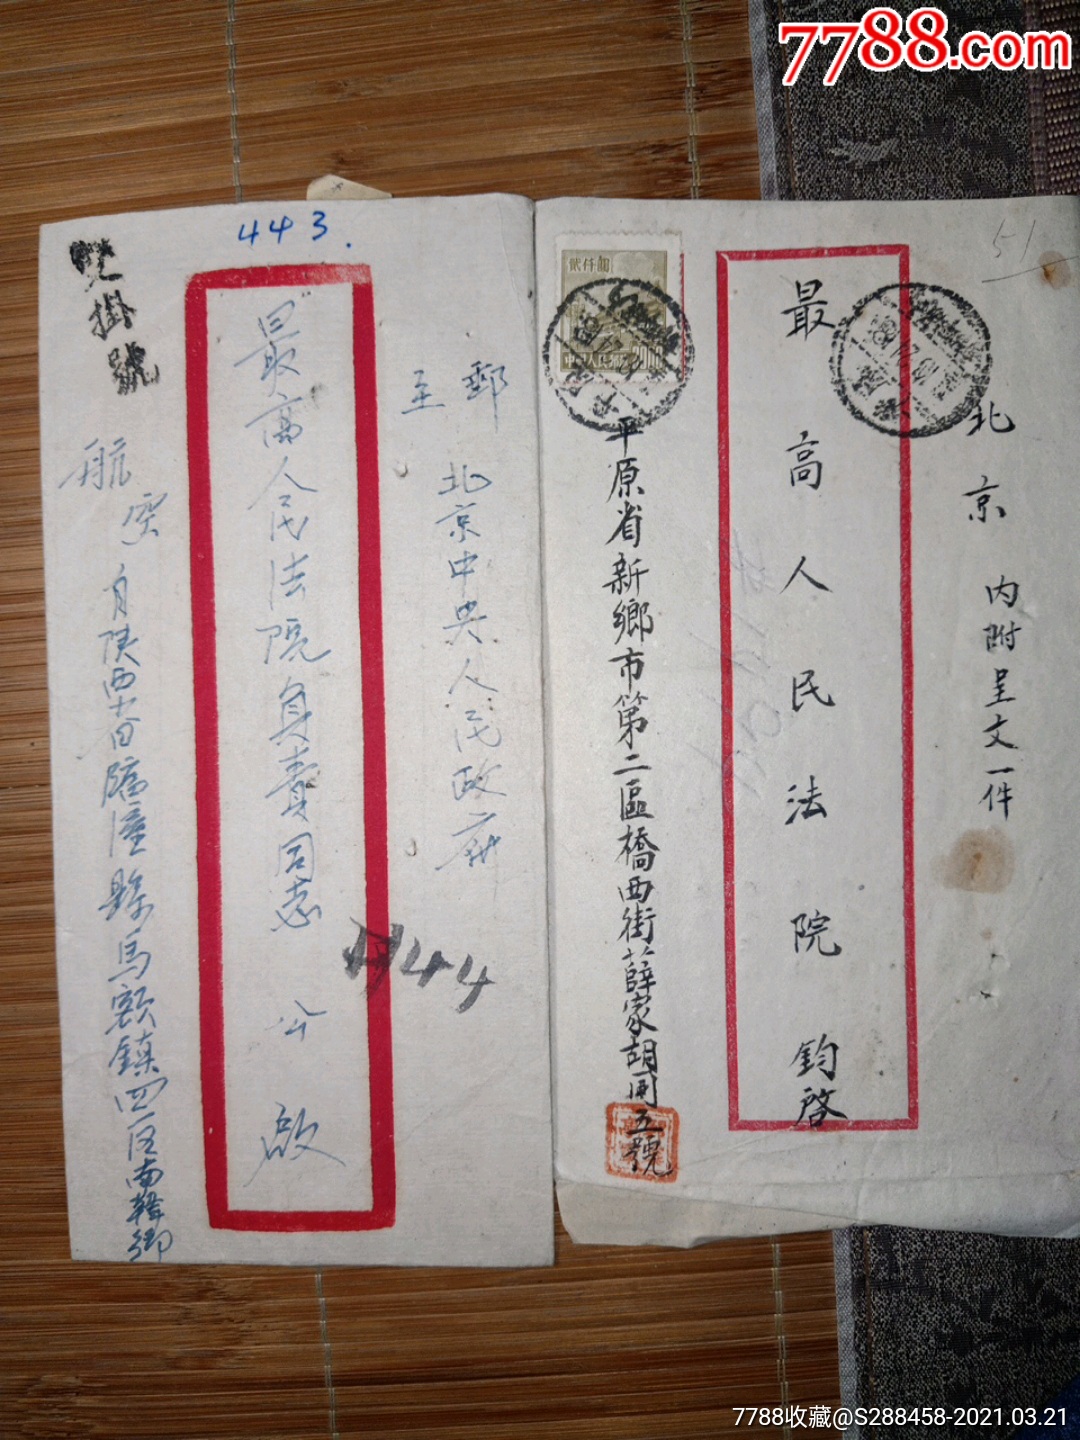 7788.com
443.
双掛號
郵至
北京中央人民政府
最高人民法院負責同志 公啟
航空
自陝西省臨潼縣馬額鎮四區南韓鄉
1944
51
北京
内附呈文一件
最高人民法院 鈞啓
貳仟圓
2000
平原省新鄉市第二區橋西街薛家胡同五號
7788收藏@S288458-2021.03.21